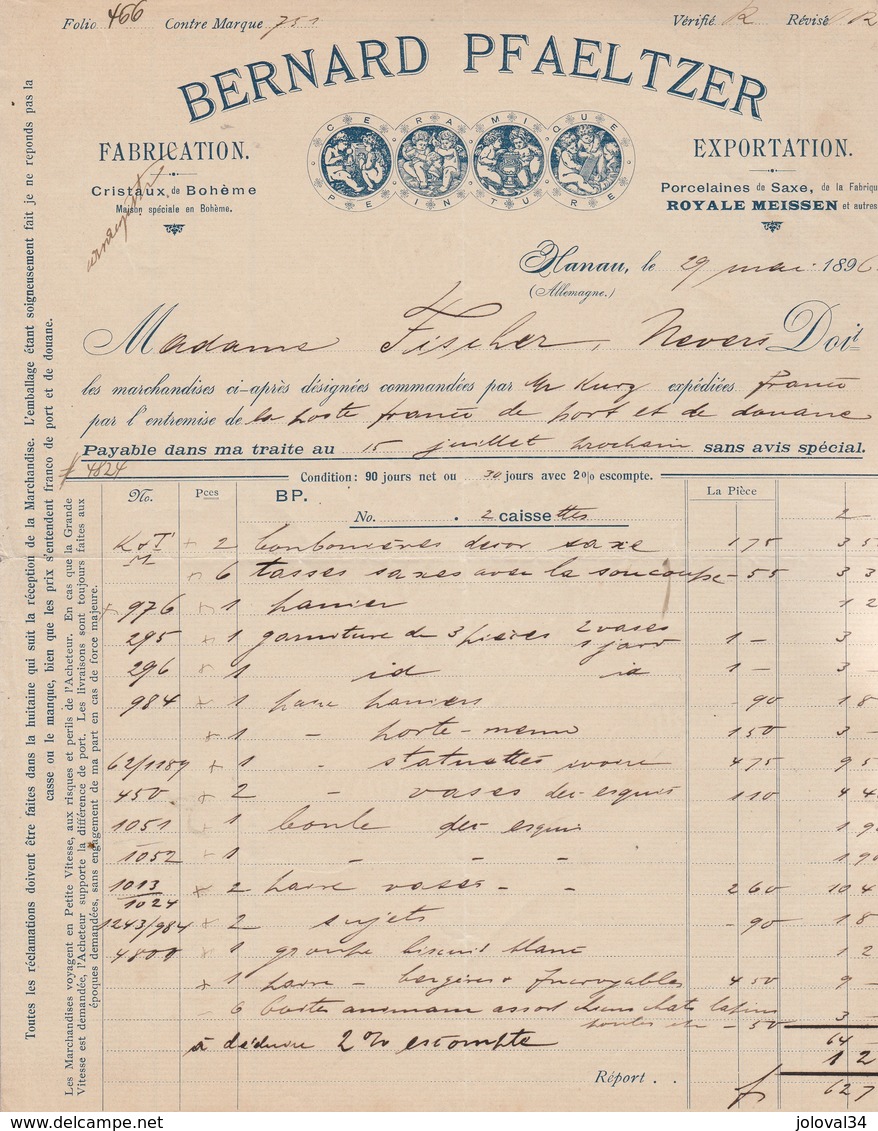 Folio 466 Contre Marque 751 Vérifié R Révisé R
BERNARD PFAELTZER
CERAMIQUE
PEINTURE
FABRICATION.
Cristaux de Bohème
Maison spéciale en Bohême.
EXPORTATION.
Porcelaines de Saxe, de la Fabriqu
ROYALE MEISSEN et autres
Hanau, le 29 mai 1896
(Allemagne.)
Madame Fischer, Nevers Doit
les marchandises ci-après désignées commandées par Mr Kurz expédiées franco
par l'entremise de la poste franco de port et de douane
Payable dans ma traite au 15 juillet prochain sans avis spécial.
# 4824
Condition: 90 jours net ou 30 jours avec 2% escompte.
No. Pces BP. La Pièce
No. . 2 caissettes 2 -
K & T/M 2 bonbonnières decor saxe 1 75 3 5
6 tasses saxes avec la soucoupe - 55 3 3
976 1 panier 1 2
295 1 garniture de 3 pièces 2 vases 1 jard 1 - 3 -
296 1 id id 1 - 3 -
984 1 paire paniers - 90 1 8
1 - porte-menu 1 50 3 -
62/1189 1 - statuettes ivoire 4 75 9 5
450 2 - vases des esquis 1 10 4 4
1051 1 boule des esquis 1 9
1052 1 - - - 1 9
1013/1024 2 paire vases - - 2 60 10 4
1243/984 2 sujets - 90 1 8
4800 1 groupe biscuit blanc 1 2
1 paire - bergères & Incroyables 4 50 9 -
6 boites animaux assort chiens chats lapins
- 50 3 -
64 -
à déduire 2% escompte 1 2
Réport . . f 62 7
Toutes les réclamations doivent être faites dans la huitaine qui suit la réception de la Marchandise. L'emballage étant soigneusement fait je ne reponds pas la
casse ou le manque, bien que les prix s'entendent franco de port et de douane.
Les Marchandises voyagent en Petite Vitesse, aux risques et perils de l'Acheteur. En cas que la Grande
Vitesse est demandée, l'Acheteur supporte la différence de port. Les livraisons sont toujours faites aux
époques demandées, sans engagement de ma part en cas de force majeure.
delcampe.net
joloval34